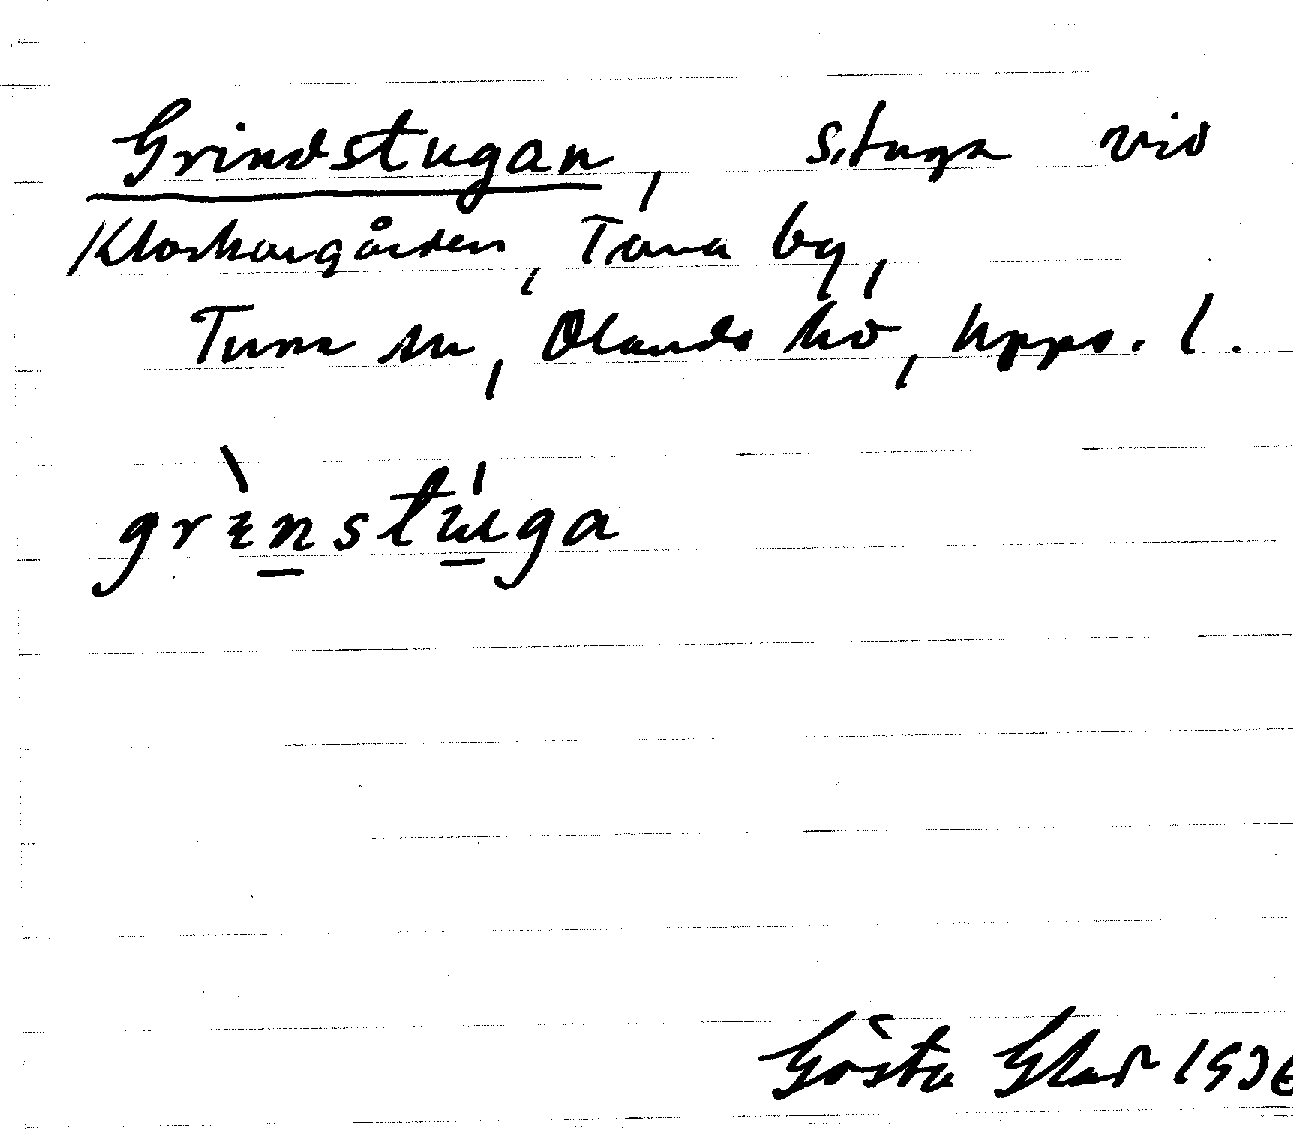 Grindstugan, stuga vid
Klockargården, Tuna by,
Tuna sn, Olands hd, Upps. l.
grìnstúga
Gösta